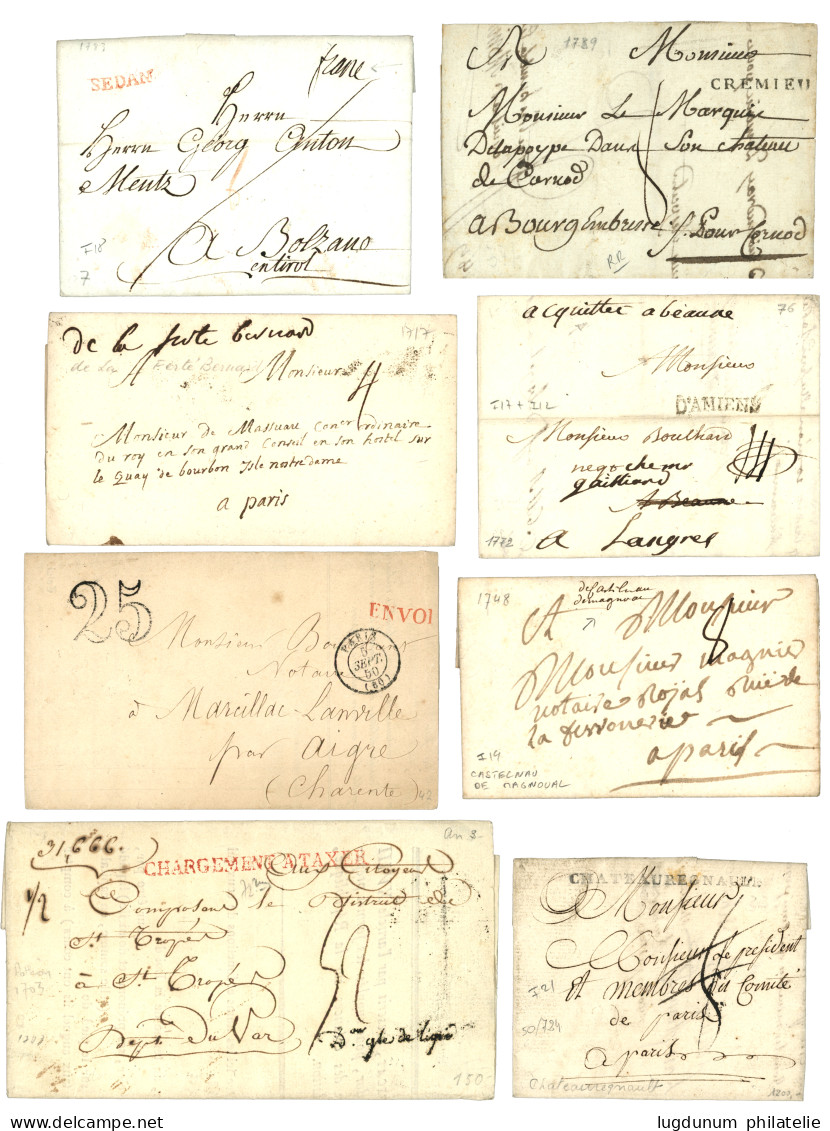 SEDAN
franc
Herrn
Herrn Georg Anton
Mentz
A Bolzano
en tirol
I18
7
1789
A Monsieur
CREMIEU
Monsieur Le Marquis
Delapoype Dans Son chateau
de Cornod
a Bourg En bresse p. Pour Cornod
RR
de la ferte bernard
1717
de la Ferté Bernard
A Monsieur
4
Monsieur de Massuau Coner ordinaire
du roy en son grand Conseil en son hostel sur
le Quay de bourbon Isle nostre dame
a paris
acquitter a beaune
76
A Monsieur
I17 + I12
D'AMIENS
Monsieur Boulhard
nego chemr
gailliard
A Beaune
1772
a Langres
25
ENVOI
PARIS
6
SEPT.
50
(60)
Monsieur
Notaire
à Marcillac-Lanville
par Aigre
(Charente)
42
1748
de Castelnau
de magnoac
A Monsieur
8
Monsieur magnier
notaire Royal Rue de
la ferronerie
a paris
I19
CASTELNAU
DE MAGNOUAL
31,666.
an 3
CHARGEMENT A TAXER
Aux Citoyens
1/2
Composant le District de
St Tropés
à St Tropés
Dépt. Du Var
Don gle de liqid
150
CHATEAUREGNAULT
Monsieur
Monsieur Le president
et membres du Comité
de paris
a paris
I21
50/724
Chateauregnault
1200,-
lugdunum philatelie